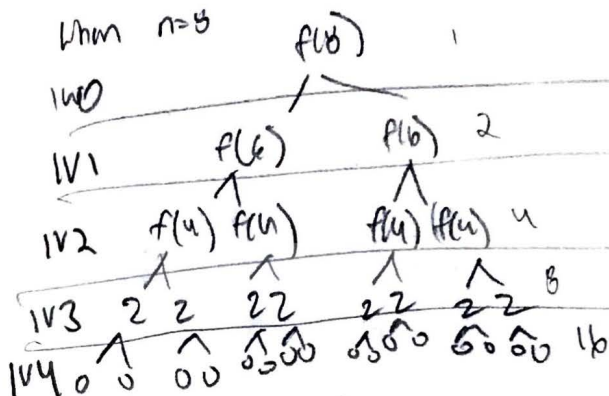 When n=8
f(8) 1
lv0
f(6) f(6) 2
lv1
lv2 f(4) f(4) f(4) f(4) 4
lv3 2 2 2 2 2 2 2 2 8
lv4 0 0 0 0 0 0 0 0 0 0 0 0 0 0 0 0 16